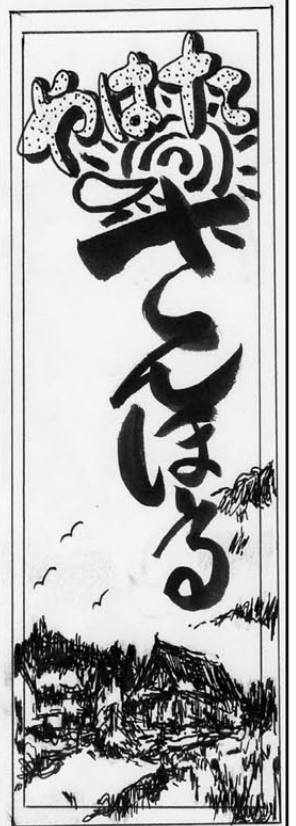 やはた
さんほる